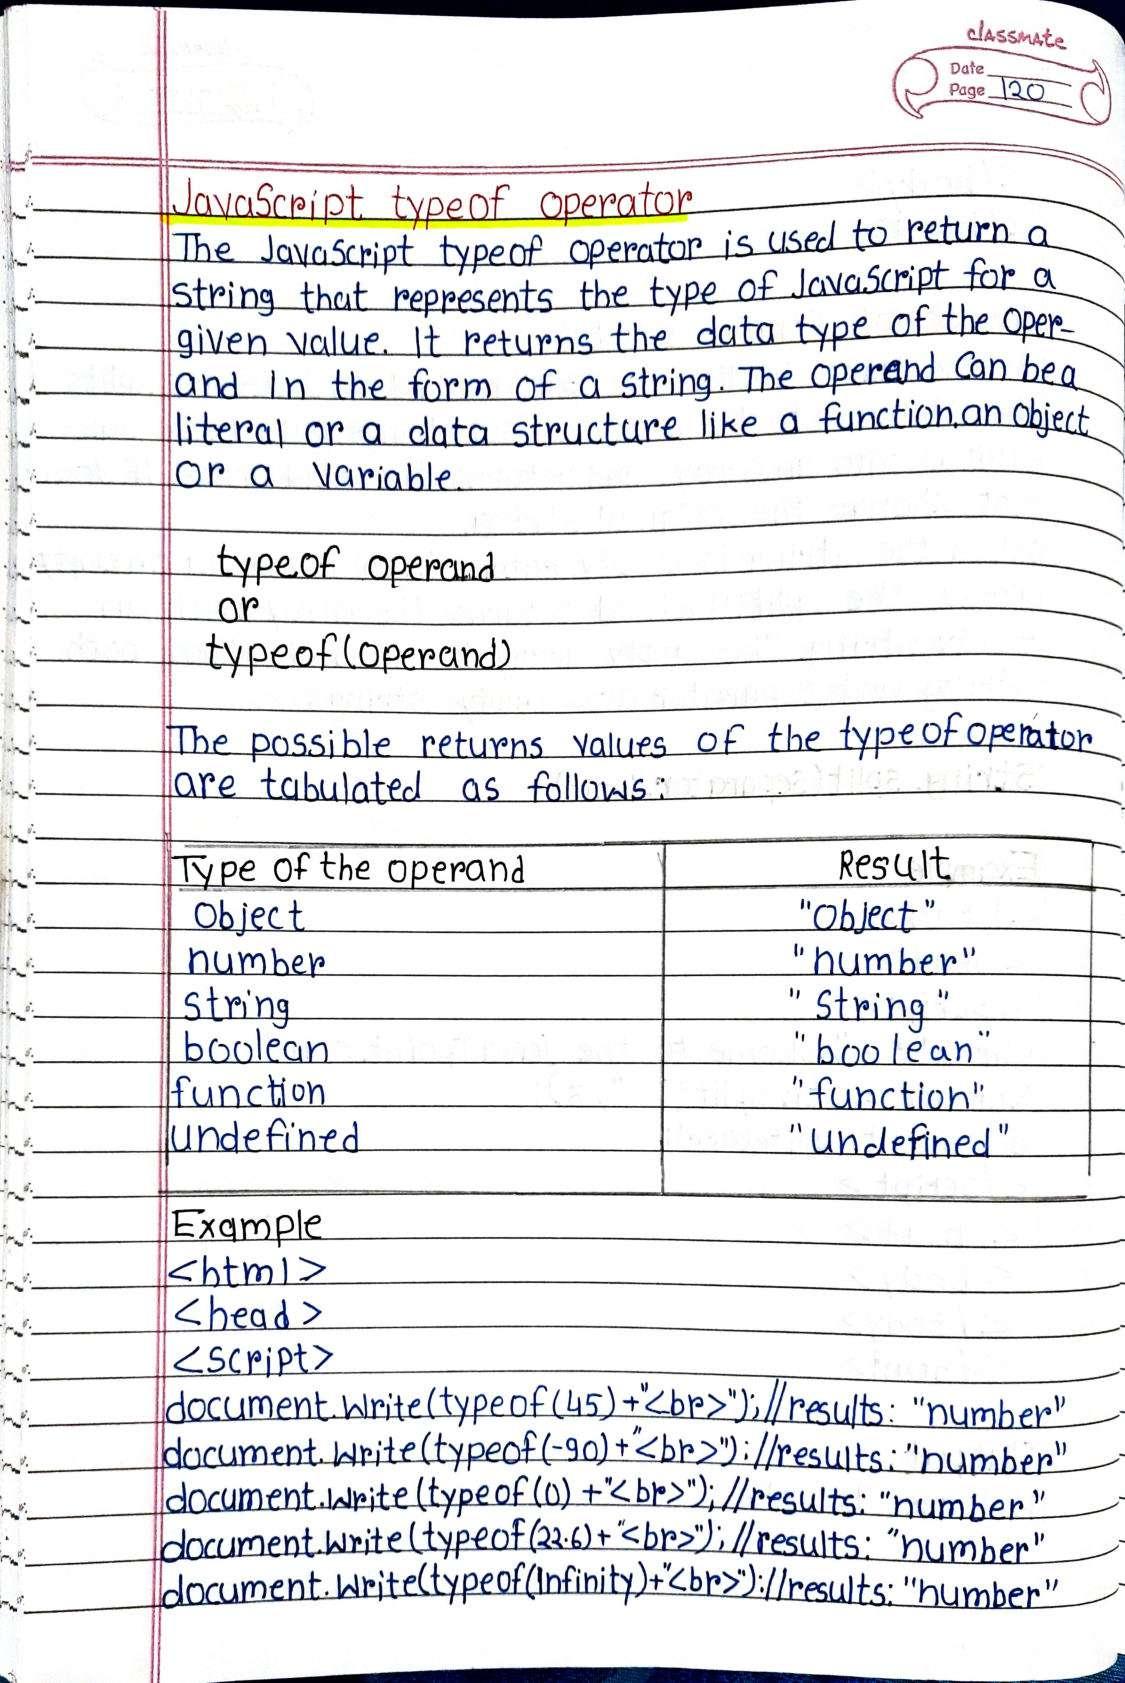 classmate
Date
Page 120
JavaScript typeof operator
The JavaScript typeof operator is used to return a
string that represents the type of JavaScript for a
given value. It returns the data type of the oper-
and in the form of a string. The operand Can be a
literal or a data structure like a function, an object
or a variable.
typeof operand
or
typeof(operand)
The possible returns values of the typeof operator
are tabulated as follows:
Type of the operand Result
Object "Object"
number "number"
String "String"
boolean "boolean"
function "function"
undefined "undefined"
Example
<html>
<head>
<script>
document.write(typeof(45)+"<br>");//results: "number"
document.write(typeof(-90)+"<br>");//results: "number"
document.write(typeof(0) +"<br>"); //results: "number"
document.write(typeof(22.6)+"<br>"); //results: "number"
document.write(typeof(Infinity)+"<br>");//results: "number"